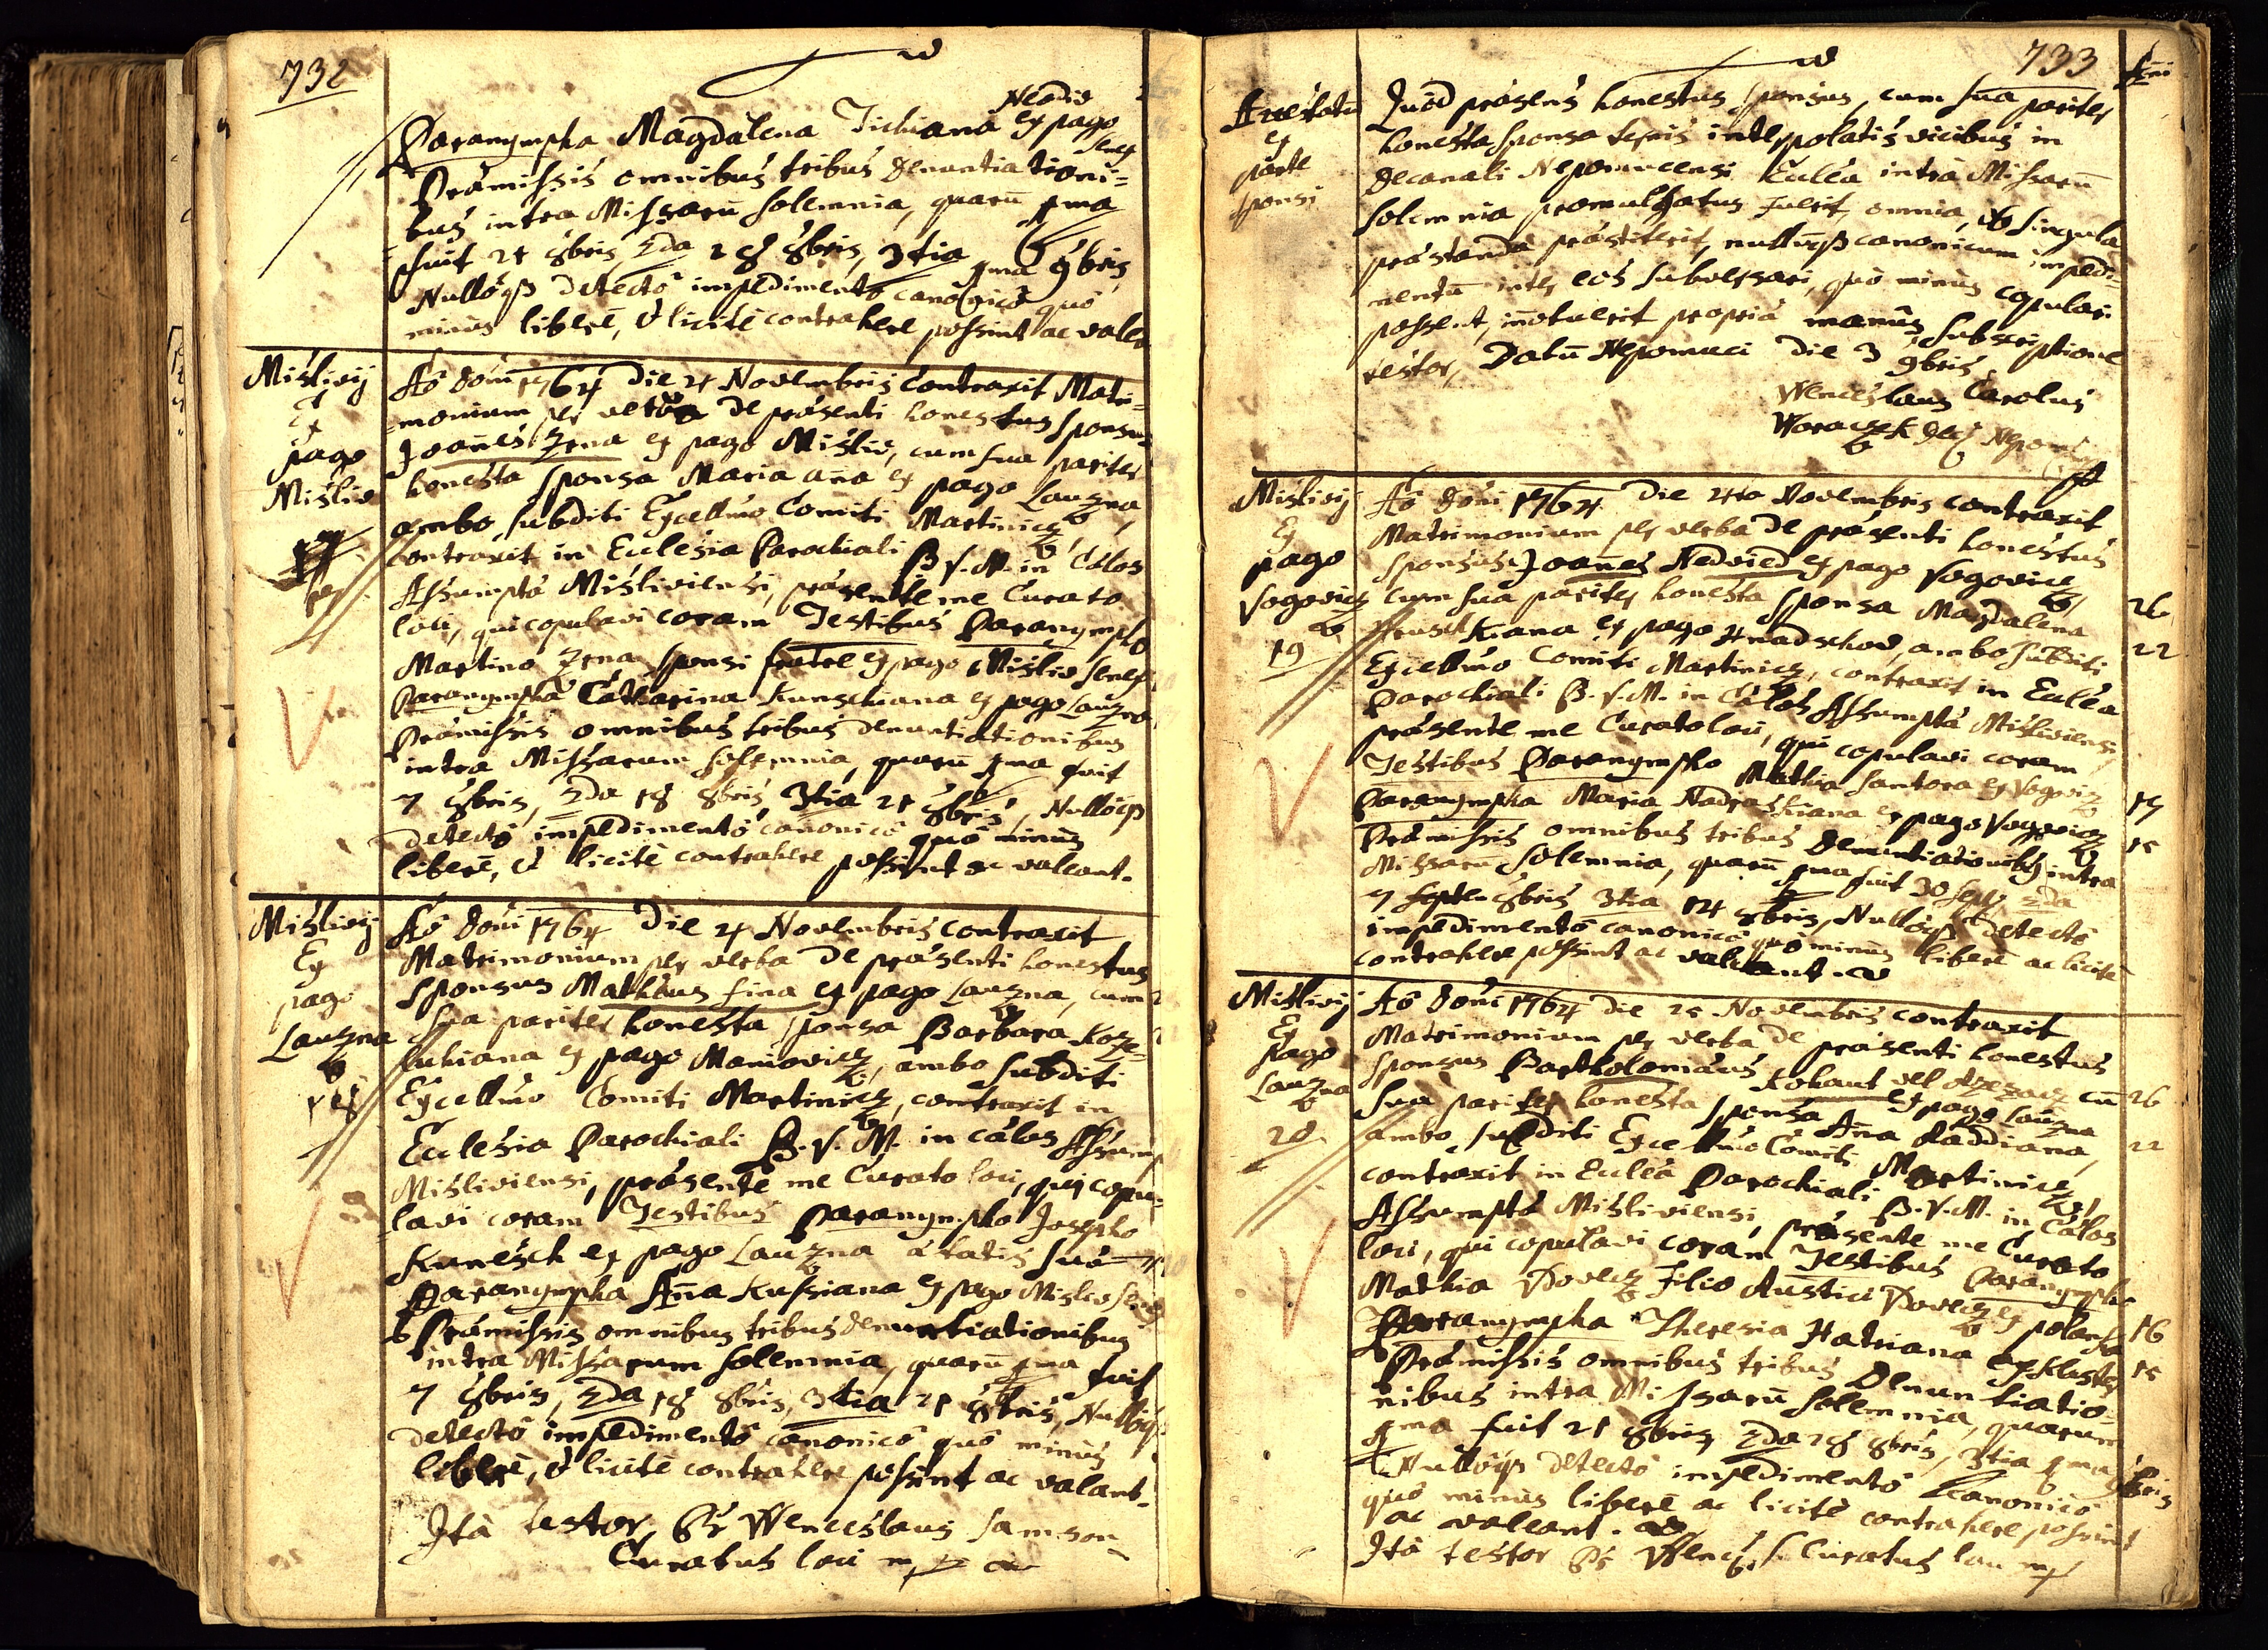 732
Neodiv
Paranympha Magdalena Tichiana ex pago
Praemissis omnibus tribus denuntiationi=
bus intra Missarū solemnia, quarū 1ma
fuit 21 8bris, 2da 28 8bris, 3tia 1ma 9bris
Nullóq detectô impedimentô canonicô quô
minùs liberè, & licitè contrahere possint ac valea
Mislivij
Ex
pago
Misliv
Aō Doni 1764 Die 4 Novembris contraxit Matri=
=monium per verba de praesenti honestus sponsus
Joañes Zrna ex pago Misliv, cum sua pariter
honesta sponsa Maria aña ex pago Lauzna,
ambo subditi Excellmo Comiti Martinicz,
contraxit in Eclesia Parochiali B.V.M. in Caelos
Assumpta Misliviensi, praesente me Curato
loci, qui copulavi coram Testibus Paranympho
Martino Zrna sponsi fratre ex pago Misliv
Paranympha Catharina Kunschiana ex pago Lauzna
Praemissis omnibus tribus denuntiationibus
intra Missarum solemnia, quarū 1ma fuit
7 8bris, 2da 18 8bris 3tia 21 8bris, Nullóq
detectô impedimentô canonicô quô minùs
liberè, & licitè contrahere possint ac valeant.
Mislivij
Ex
pago
Lauzna
18
Aō Doni 1764 Die 4 Novembris contraxit
Matrimonium per verba de praesenti honestus
sponsus Mathaeus Fina ex pago Lauzna, cum
sua pariter honesta sponsa Barbara Koze=
luhiana ex pago Maniovicz, ambo subditi
Excellmo Comiti Martinicz, contraxit in
Eclesia Parochiali B.V.M. in Caelos Assump
Misliviensi, praesente me Curato loci, qui copu=
=lavi coram Testibus Paranympho Josepho
Kunesch ex pago Lauzna aetatis suae
Paranympha Aña Kussiana ex pago Misliv
Praemissis omnibus tribus denuntiationibus
intra Missarum solemnia, quarū 1ma fuit
7 8bris, 2da 18 8bris, 3tia 21 8bris, Nullóq
detectô impedimentô canonicô quô minùs
liberè, & licitè contrahere possint ac valant.
Ità testor, Pr Wenceslaus Samson
Curatus loci mp
733
Añi
Attestatū
ex
parte
sponsi
Quòd praesens honestus sponsus, cum sua pariter
honesta sponsa ternis interpolatis vicibus in
Decanali Nepomucensi Ecclea intra Missarū
solemnia promulgatus fuerit, omnia, & singula
praestanda praestiterit, nullumq canonicum impedi=
mentū inter eos subversari, quô minùs copulari
possent, innotuerit propria manûs subscriptione
testor, Datū Nepomuci Die 3 9bris
Wenceslaus Carolus
Woraczek
Mislivij
Ex
pago
Vogovicz
19
Aō Doni 1764 Die 4to Novembris contraxit
Matrimonium per verba de praesenti honestus
sponsus Joañes Nedvied ex pago Vogovicz, 26
cum sua pariter honesta sponsa Magdalena
Kiana ex pago Hradschod, ambo subditi 22
Excellmo Comiti Martinicz, contraxit in Ecclea
Parochiali B.V.M. in Caelos Assumpta Misliviensi
praesente me Curato loci, qui copulavi coram
Testibus Paranympho Mathia Santora ex Vogovicz 17
Paranympha Maria Nadraskiana ex pago Vogovicz 15
Praemissis omnibus tribus denuntiationibq intra
Missarū solemnia, quarū 1ma fuit 30 Sept 2da
7 8bris 3tia 14 8bris, Nullóq detectô
impedimentô canonicô quô minùs liberè ac licitè
contrahere possint ac valeant.
Mislivij
Ex
Pago
Lauzna
20
Aō Doni 1764 Die 25 Novembris contraxit
Matrimonium per verba de praesenti honestus
sponsus Bartholomaeus Kohaut vel cū 26
ex pago Lauzna
sua pariter honesta sponsa Aña Raddiana, 22
ambo subditi Excellmo Comiti Martinicz,
contraxit in Ecclea Parochiali B.V.M. in Caelos
Assumpta Misliviensi, praesente me Curato
loci, qui copulavi coram Testibus Paranympho
Mathia Povlez Filio Rustici Povlez ex polanka 16
Paranympha Theresia Hatriana ex Klaster 15
Praemissis omnibus tribus Denuntiatio=
nibus intra Missarū solemnia, quarum
1ma fuit 21 8bris, 2da 28 8bris, 3tia 1ma 9bris
Nullóq detectô impedimentô canonicô
quô minùs liberè ac licitè contrahere possint
ac valeant.
Ità testor Pr Wences. S. Curatus loci mp